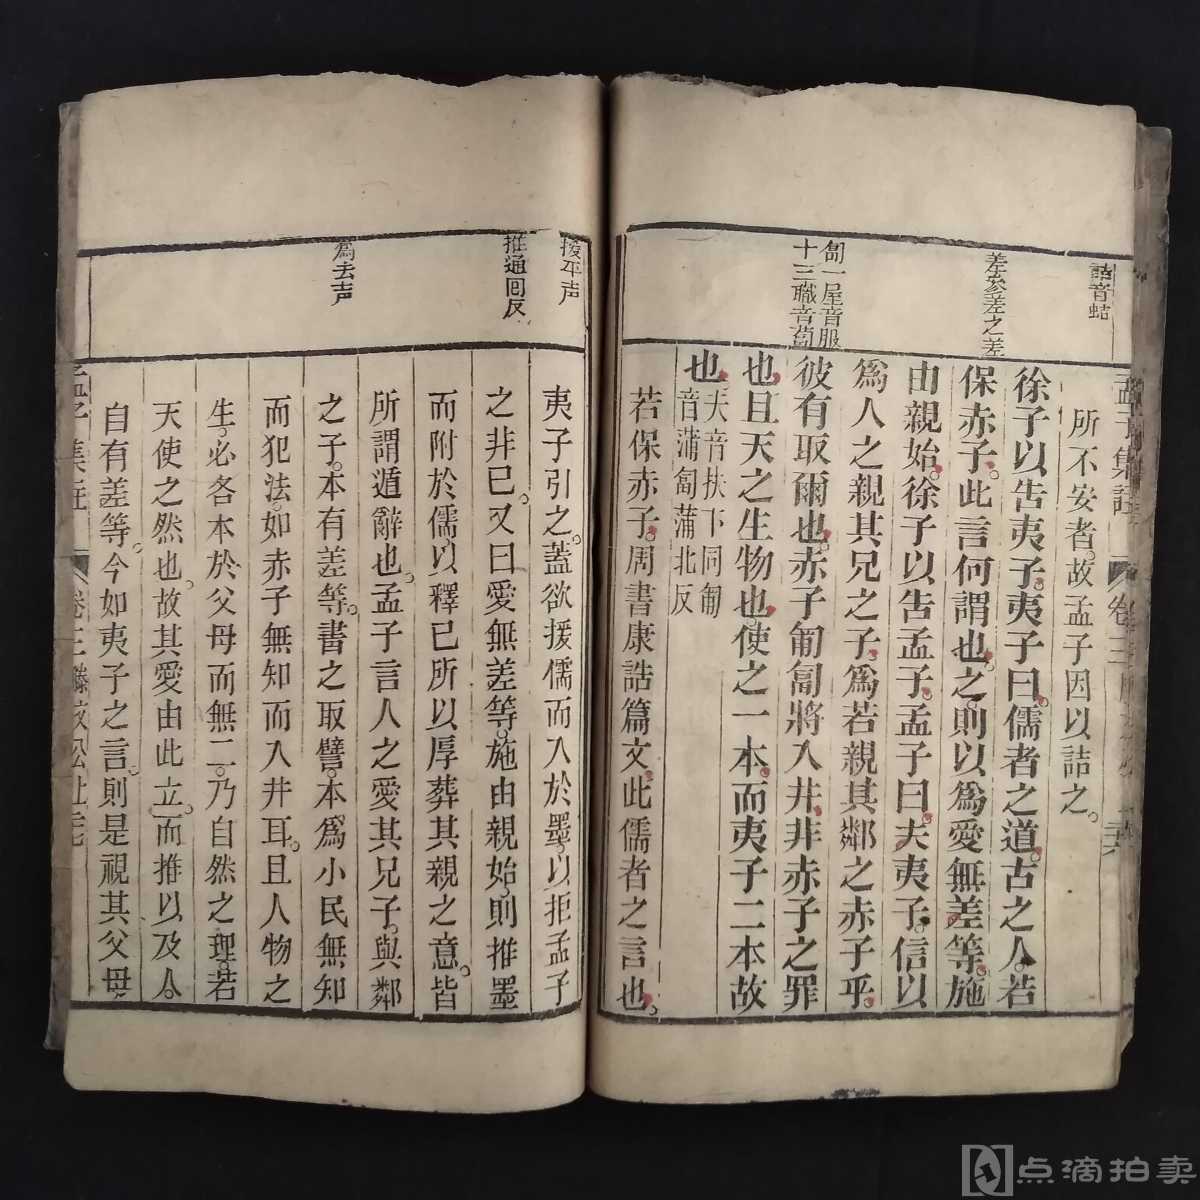 詰音蛣
差參差之差
匐一屋音服
十三職音蔔
孟子集註 卷三
所不安者。故孟子因以詰之。
徐子以告夷子。夷子曰。儒者之道。古之人。若
保赤子。此言何謂也。之則以爲愛無差等。施
由親始。徐子以告孟子。孟子曰。夫夷子。信以
爲人之親其兄之子。爲若親其鄰之赤子乎。
彼有取爾也。赤子匍匐將入井。非赤子之罪
也。且天之生物也。使之一本。而夷子二本故
也。夫音扶下同匍
音蒲匐蒲北反
若保赤子。周書康誥篇文。此儒者之言也。
援平声
推通回反
爲去声
夷子引之。蓋欲援儒而入於墨。以拒孟子
之非已。又曰愛無差等。施由親始。則推墨
而附於儒。以釋已所以厚葬其親之意。皆
所謂遁辭也。孟子言人之愛其兄子。與鄰
之子。本有差等。書之取譬。本爲小民無知
而犯法。如赤子無知而入井耳。且人物之
生。必各本於父母而無二。乃自然之理。若
天使之然也。故其愛由此立。而推以及人。
自有差等。今如夷子之言。則是視其父母
孟子集註 卷三滕文公上
点滴拍卖